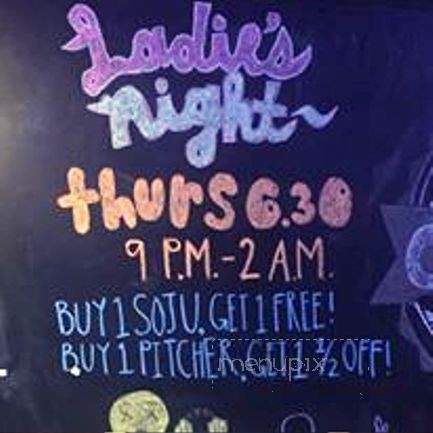 Ladie's
night~
thurs 6.30
9 P.M.-2 A.M.
BUY 1 SOJU, GET 1 FREE!
BUY 1 PITCHER, GET 1 ½ OFF!
menupix